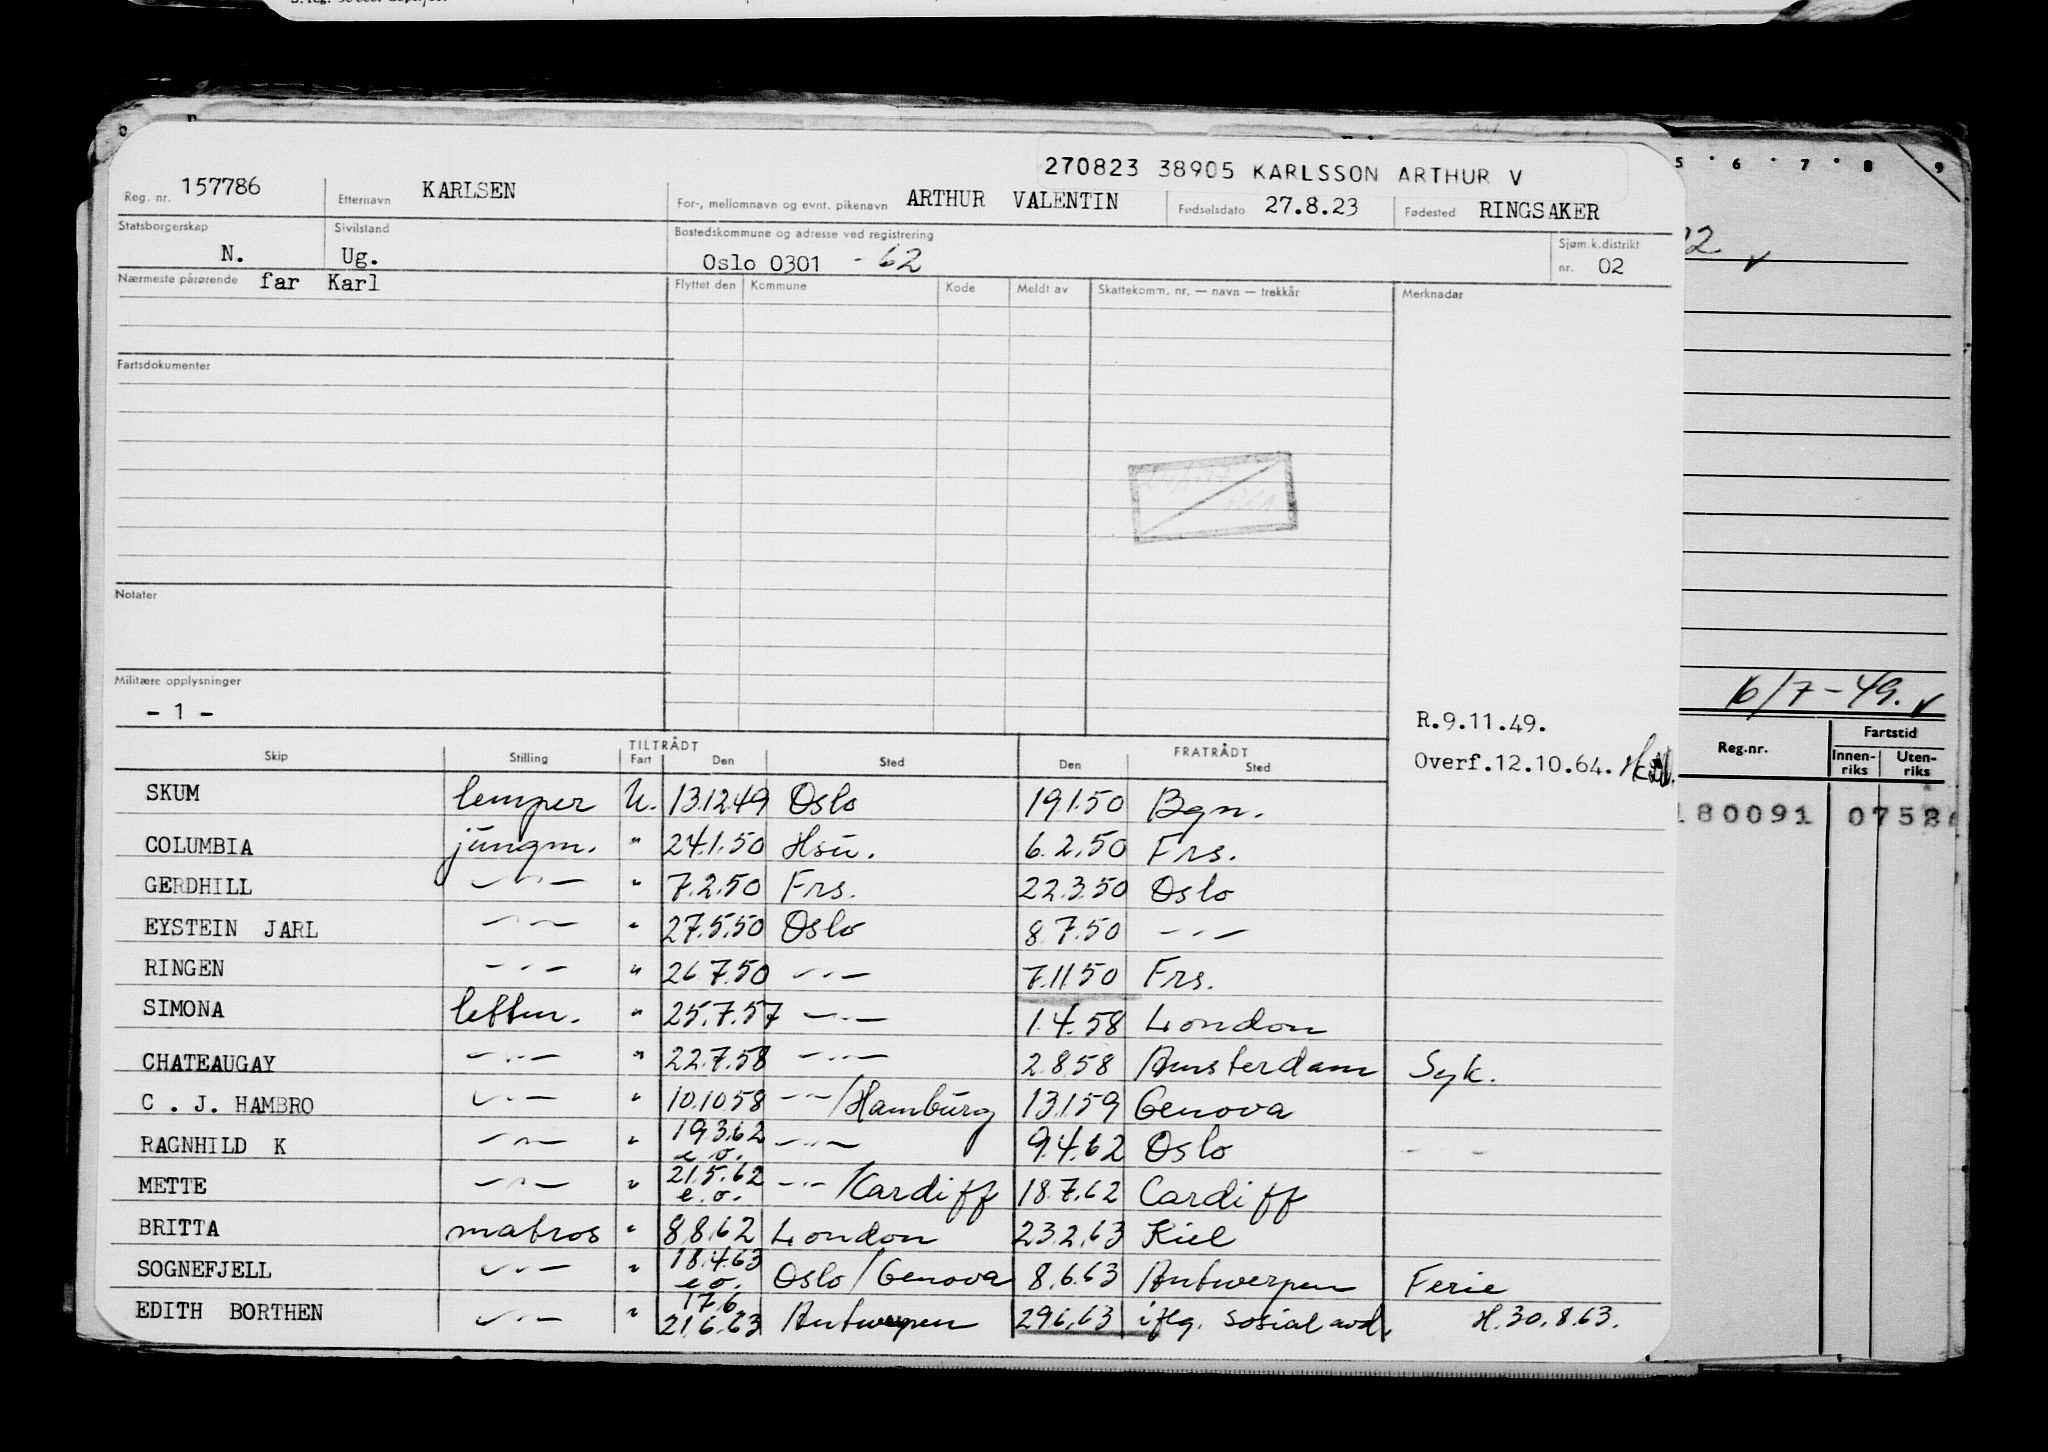 270823 38905 KARLSSON ARTHUR V
Reg. nr. 157786 Etternavn KARLSEN For-, mellomnavn og evnt. pikenavn ARTHUR VALENTIN Fødselsdato 27.8.23 Fødested RINGSAKER
5 6 7 8 9
Statsborgerskap N. Sivilstand Ug. Bostedskommune og adresse ved registrering Oslo 0301 - 62 Sjøm.k.distrikt nr. 02
Nærmeste pårørende far Karl Flyttet den Kommune Kode Meldt av Skattekomm. nr. — navn — trekkår Merknadar
Fartsdokumenter
Notater
Militære opplysninger
- 1 -
R.9.11.49.
Overf.12.10.64.
16/7-49.
Reg.nr. Fartstid
Innen-riks Uten-riks
180091 0752
TILTRÅDT FRATRÅDT
Skip Stilling Fart Den Sted Den Sted
SKUM lemper U. 13.12.49 Oslo 19.1.50 Bgn.
COLUMBIA jungm. " 24.1.50 Hsu. 6.2.50 Frs.
GERDHILL —"— " 7.2.50 Frs. 22.3.50 Oslo
EYSTEIN JARL —"— " 27.5.50 Oslo 8.7.50 —"—
RINGEN —"— " 26.7.50 —"— 7.11.50 Frs.
SIMONA lettm. " 25.7.57 —"— 1.4.58 London
CHATEAUGAY —"— " 22.7.58 —"— 2.8.58 Amsterdam Syk.
C . J. HAMBRO —"— " 10.10.58 —"—/Hamburg 13.1.59 Genova
RAGNHILD K —"— " 19.3.62 e.o. —"— 9.4.62 Oslo
METTE —"— " 21.5.62 e.o. —"—/Cardiff 18.7.62 Cardiff
BRITTA matros " 8.8.62 London 23.2.63 Kiel
SOGNEFJELL —"— " 18.4.63 e.o. Oslo/Genova 8.6.63 Antwerpen Ferie
EDITH BORTHEN —"— " 17.6. 21.6.63 Antwerpen 29.6.63 iflg. Sosial avd. H.30.8.63.